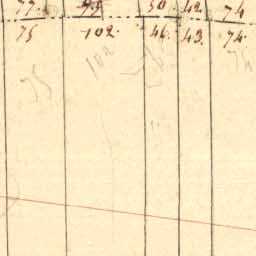 77. 79 50. 42. 74
75 102. 46. 43. 74.
75 102 74